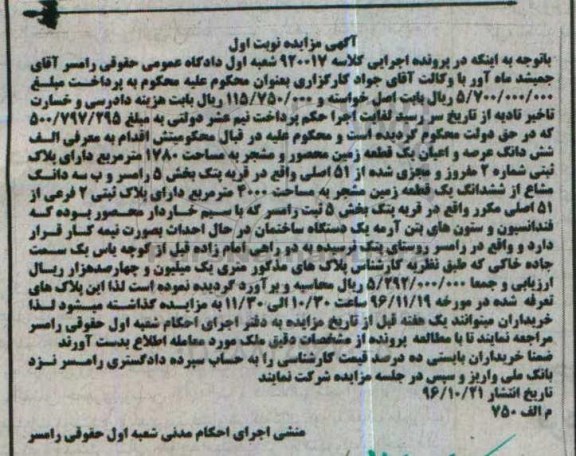 آگهی مزایده نوبت اول
باتوجه به اینکه در پرونده اجرایی کلاسه ۹۲۰۰۱۷ شعبه اول دادگاه عمومی حقوقی رامسر آقای
جمیشد ماه آور با وکالت آقای جواد کارگزاری بعنوان محکوم علیه محکوم به پرداخت مبلغ
۵/۷۰۰/۰۰۰/۰۰۰ ریال بابت اصل خواسته و ۱۱۵/۷۵۰/۰۰۰ ریال بابت هزینه دادرسی و خسارت
تاخیر تادیه از تاریخ سر رسید لغایت اجرا حکم پرداخت نیم عشر دولتی به مبلغ ۵۰۰/۷۹۷/۲۹۵
که در حق دولت محکوم گردیده است و محکوم علیه در قبال محکومیتش اقدام به معرفی الف
شش دانگ عرصه و اعیان یک قطعه زمین محصور و مشجر به مساحت ۱۷۸۰ مترمربع دارای پلاک
ثبتی شماره ۲ مفروز و مجزی شده از ۵۱ اصلی واقع در قریه پتک بخش ۵ رامسر و ب سه دانگ
مشاع از ششدانگ یک قطعه زمین مشجر به مساحت ۴۰۰۰ مترمربع دارای پلاک ثبتی ۲ فرعی از
۵۱ اصلی مکرر واقع در قریه پتک بخش ۵ ثبت رامسر که با سیم خاردار محصور بوده که
فنداسیون و ستون های بتن آرمه یک دستگاه ساختمان در حال احداث بصورت نیمه کار قرار
دارد و واقع در رامسر روستای پتک نرسیده به دو راهی امام زاده قبل از کوچه یاس یک سمت
جاده خاکی که طبق نظریه کارشناس پلاک های مذکور متری یک میلیون و چهارصدهزار ریال
ارزیابی و جمعا ۵/۲۹۲/۰۰۰/۰۰۰ ریال محاسبه و برآورد گردیده نموده است لذا این پلاک های
تعرفه شده در مورخه ۹۶/۱۱/۱۹ ساعت ۱۰/۳۰ الی ۱۱/۳۰ به مزایده گذاشته میشود لذا
خریداران میتوانند یک هفته قبل از تاریخ مزایده به دفتر اجرای احکام شعبه اول حقوقی رامسر
مراجعه نمایند تا با مطالعه پرونده از مشخصات دقیق ملک مورد معامله اطلاع بدست آورند
ضمنا خریداران بایستی ده درصد قیمت کارشناسی را به حساب سپرده دادگستری رامسر نزد
بانک ملی واریز و سپس در جلسه مزایده شرکت نمایند
تاریخ انتشار ۹۶/۱۰/۲۱
م الف ۷۵۰
منشی اجرای احکام مدنی شعبه اول حقوقی رامسر